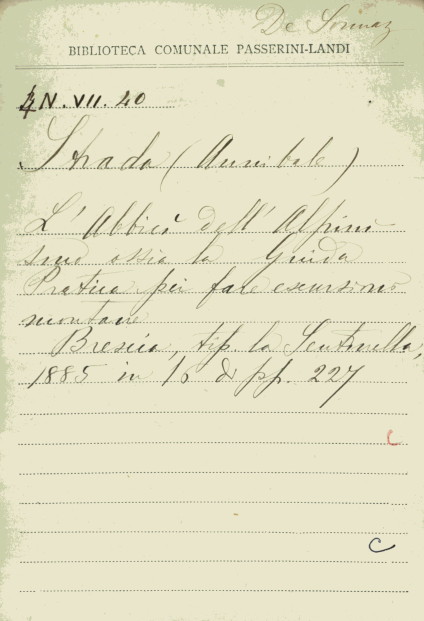 De Sonnaz
BIBLIOTECA COMUNALE PASSERINI-LANDI
4 N. VII. 40
Strada (Annibale)
L'Abbici dell'Alpini
smo ossia la Guida
Pratica per fare escursioni
montane
Brescia, tip. la Sentinella,
1885 in 16 di pp. 227
C
C